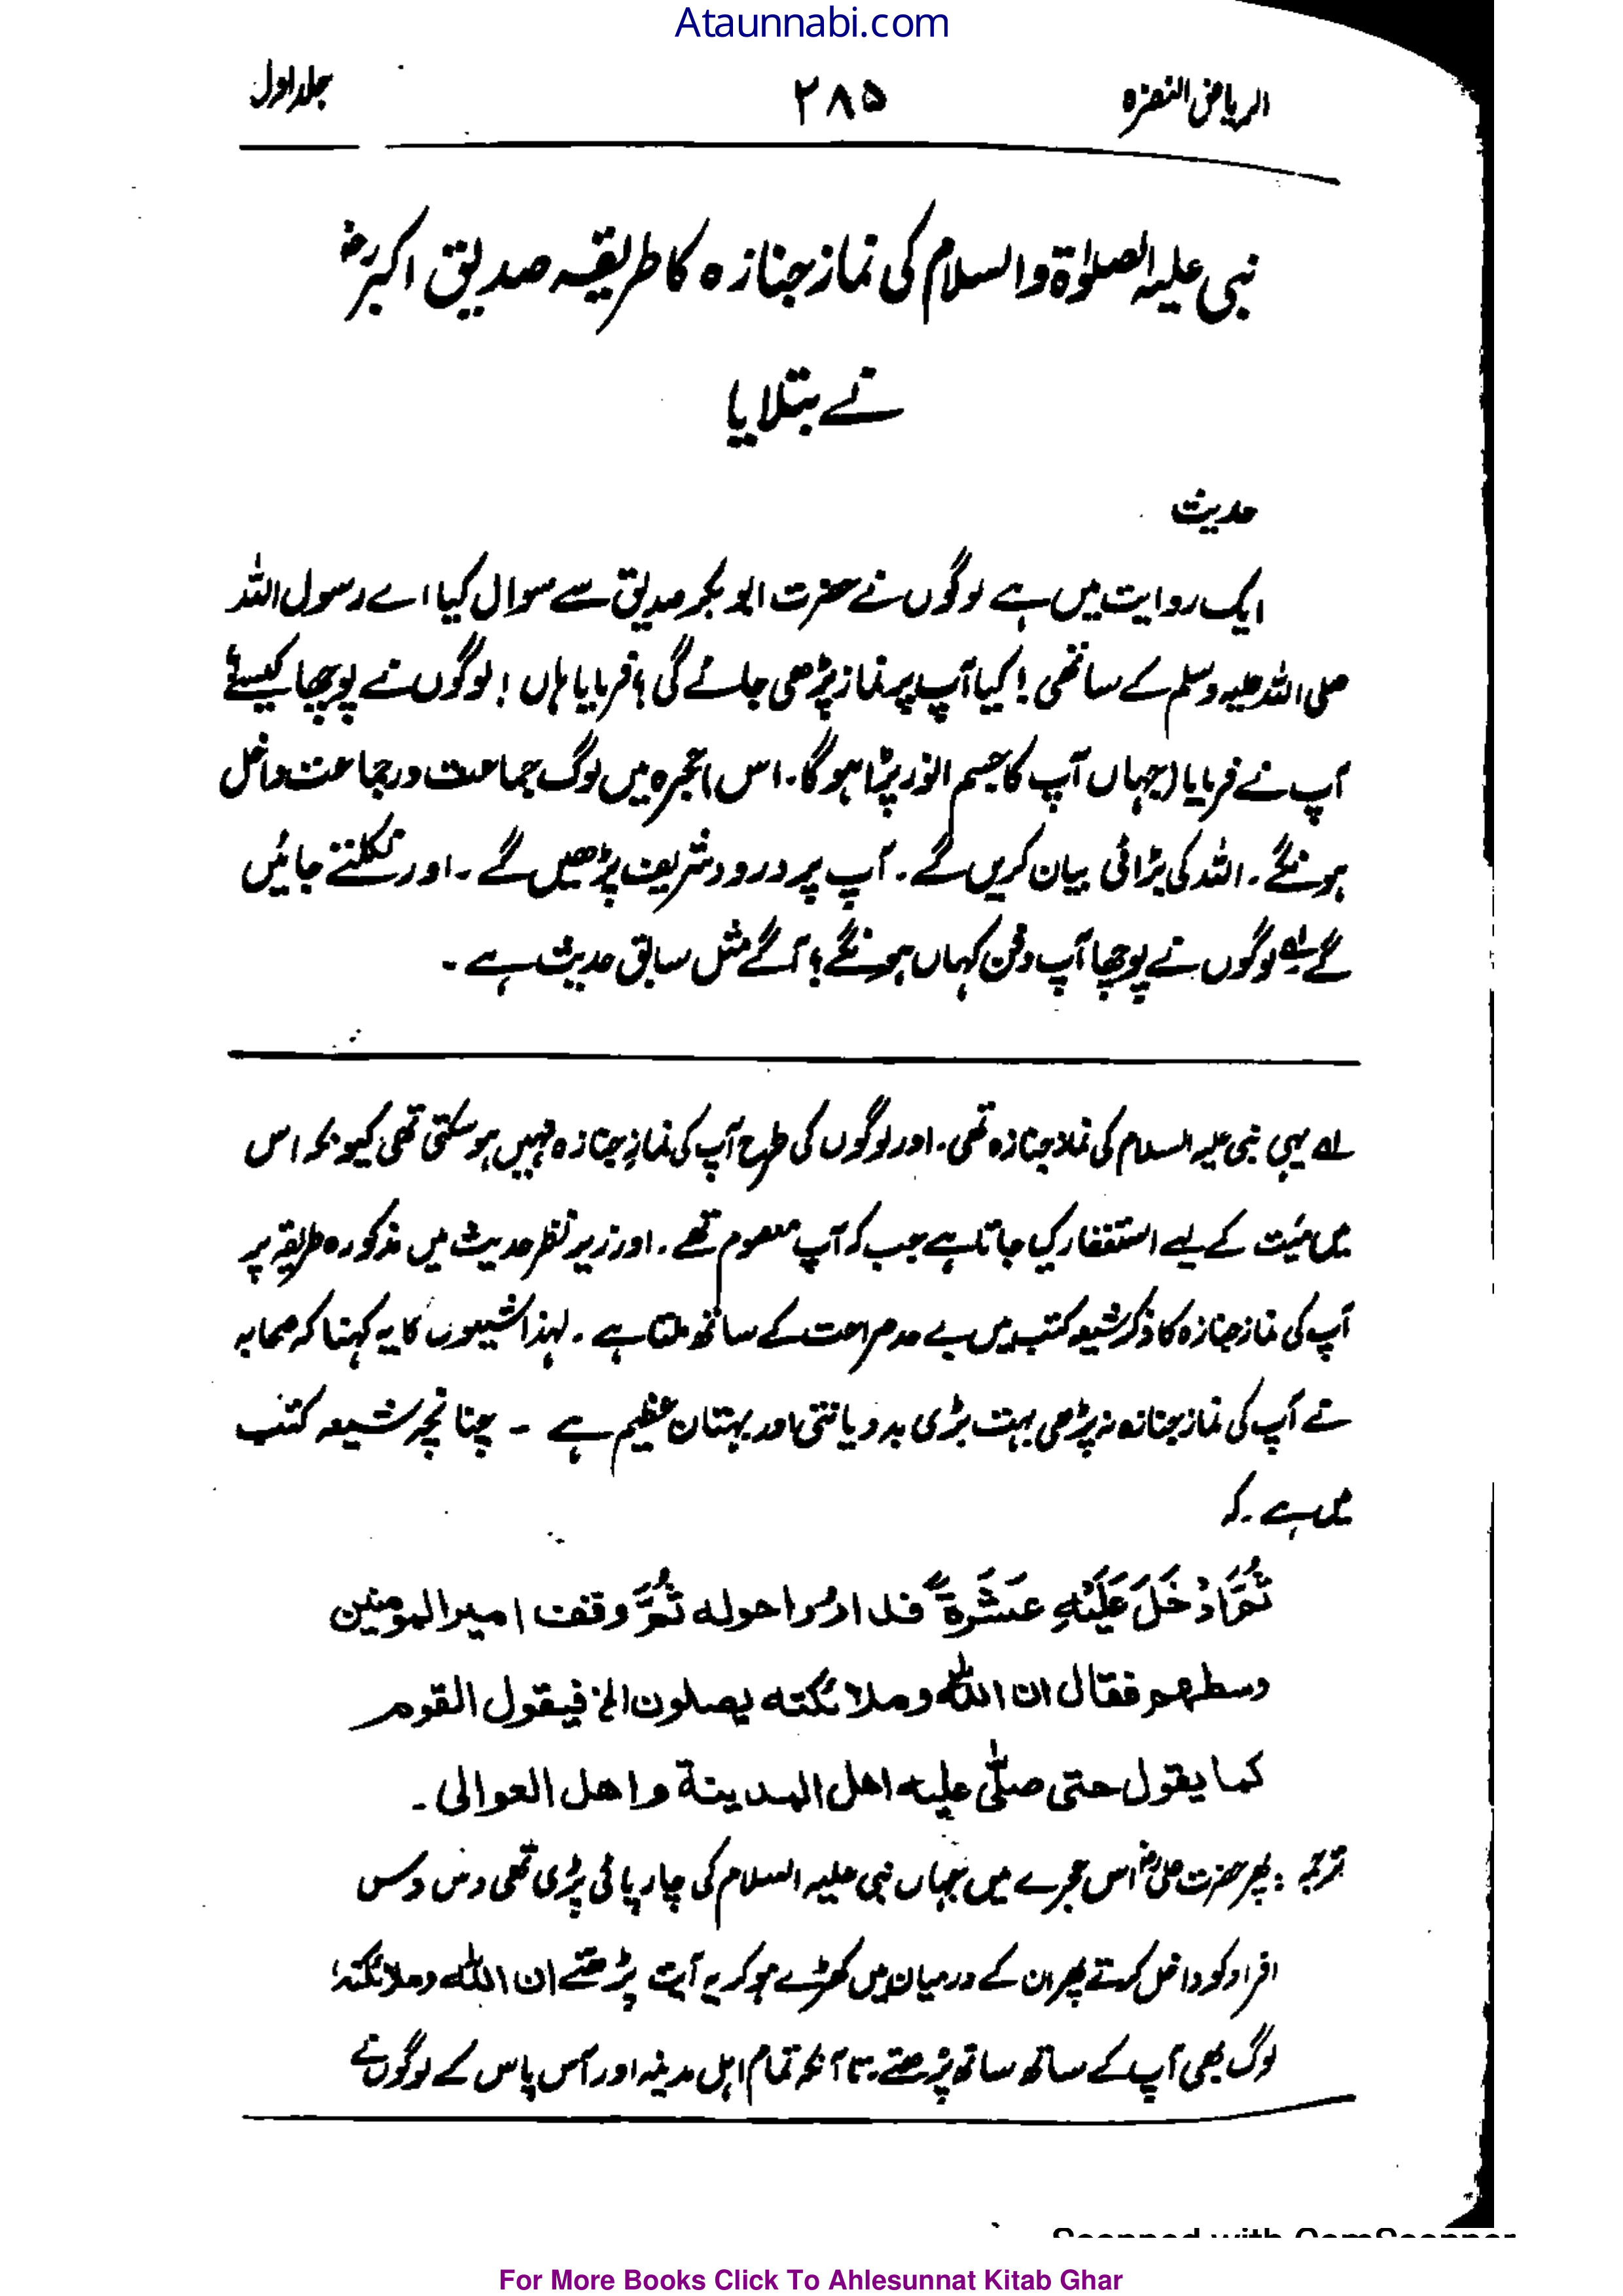 Ataunnabi.com
الریاض النضرہ ۲۸۵ جلد اول
نبی علیہ الصلوٰۃ والسلام کی نماز جنازہ کا طریقہ صدیق اکبرؓ
نے بتلایا
حدیث
ایک روایت میں ہے لوگوں نے حضرت ابو بکر صدیق سے سوال کیا اے رسول اللہ
صلی اللہ علیہ وسلم کے ساتھی! کیا آپ پر نماز پڑھی جائے گی؟ فرمایا ہاں! لوگوں نے پوچھا کیسے؟
آپ نے فرمایا (جہاں آپ کا جسم انور پڑا ہو گا۔ اس) حجرہ میں لوگ جماعت در جماعت داخل
ہونگے۔ اللہ کی بڑائی بیان کریں گے۔ آپ پر درود شریف پڑھیں گے۔ اور نکلتے جائیں
گے لہ لوگوں نے پوچھا آپ دفن کہاں ہونگے؟ آگے مثل سابق حدیث ہے۔
لہ یہی نبی علیہ السلام کی نماز جنازہ تھی۔ اور لوگوں کی طرح آپ کی نماز جنازہ نہیں ہو سکتی تھی کیونکہ اس
میں میّت کے لیے استغفار کیا جاتا ہے جب کہ آپ معصوم تھے۔ اور زیر نظر حدیث میں مذکورہ طریقہ پر
آپ کی نماز جنازہ کا ذکر شیعہ کتب میں بے حد صراحت کے ساتھ ملتا ہے۔ لہذا شیعوں کا یہ کہنا کہ صحابہ
نے آپ کی نماز جنازہ نہ پڑھی بہت بڑی بد دیانتی اور بہتان عظیم ہے ۔ چنانچہ شیعہ کتب
میں ہے۔ کہ
ثُمَّ اَدْخَلَ عَلَیْہِ عَشَرَۃً فداروا حولہ ثُمَّ وقف امیر المومنین
وسطھم فقال ان اللہ وملائکتہ یصلون الخ فیقول القوم
کما یقول حتی صلّٰی علیہ اھل المدینۃ واھل العوالی۔
ترجمہ: پھر حضرت علیؓ اس حجرے میں جہاں نبی علیہ السلام کی چارپائی پڑی تھی دس دس
افراد کو داخل کرتے پھر ان کے درمیان میں کھڑے ہو کر یہ آیت پڑھتے ان اللہ وملائکتہ؛
لوگ بھی آپ کے ساتھ ساتھ پڑھتے۔ تا آنکہ تمام اہل مدینہ اور آس پاس کے لوگوں نے
Scanned with CamScanner
For More Books Click To Ahlesunnat Kitab Ghar